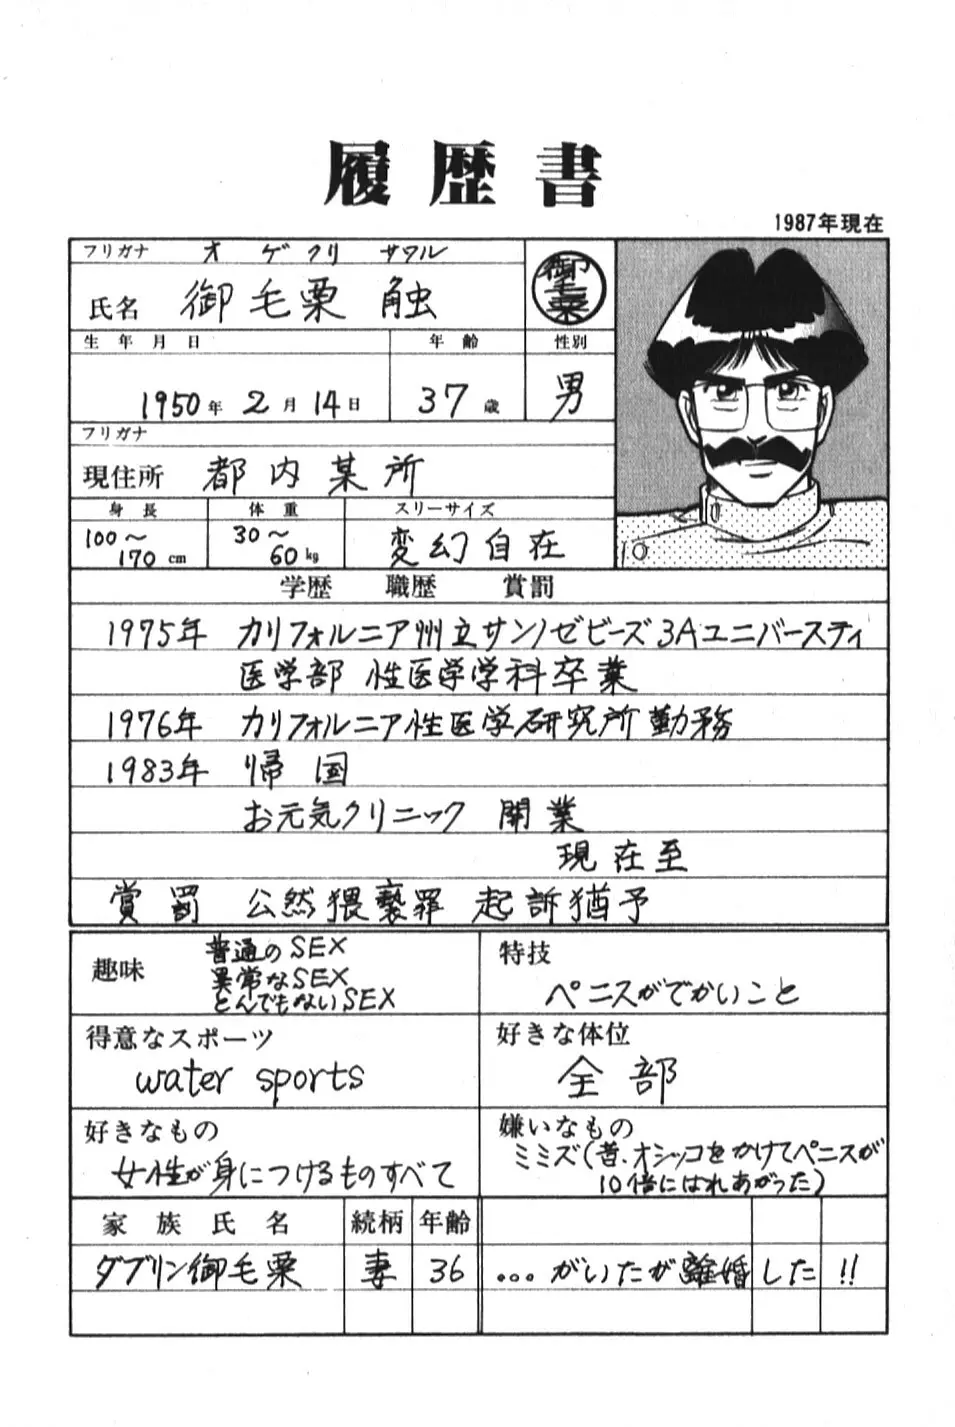 履歴書
1987年現在
フリガナ オゲクリ サワル
氏名 御毛栗 触
御毛栗
生年月日 年齢 性別
1950年 2月 14日 37歳 男
フリガナ
現住所 都内某所
身長 体重 スリーサイズ
100〜170cm 30〜60kg 変幻自在
学歴 職歴 賞罰
1975年 カリフォルニア州立サンノゼビーズ3Aユニバースティ
医学部 性医学学科卒業
1976年 カリフォルニア性医学研究所勤務
1983年 帰国
お元気クリニック 開業
現在至
賞罰 公然猥褻罪 起訴猶予
趣味 普通のSEX
異常なSEX
とんでもないSEX
特技
ペニスがでかいこと
得意なスポーツ
water sports
好きな体位
全部
好きなもの
女性が身につけるものすべて
嫌いなもの
ミミズ(昔、オシッコをかけてペニスが
10倍にはれあがった)
家族氏名 続柄 年齢
ダブリン御毛栗 妻 36 ...がいたが離婚した!!